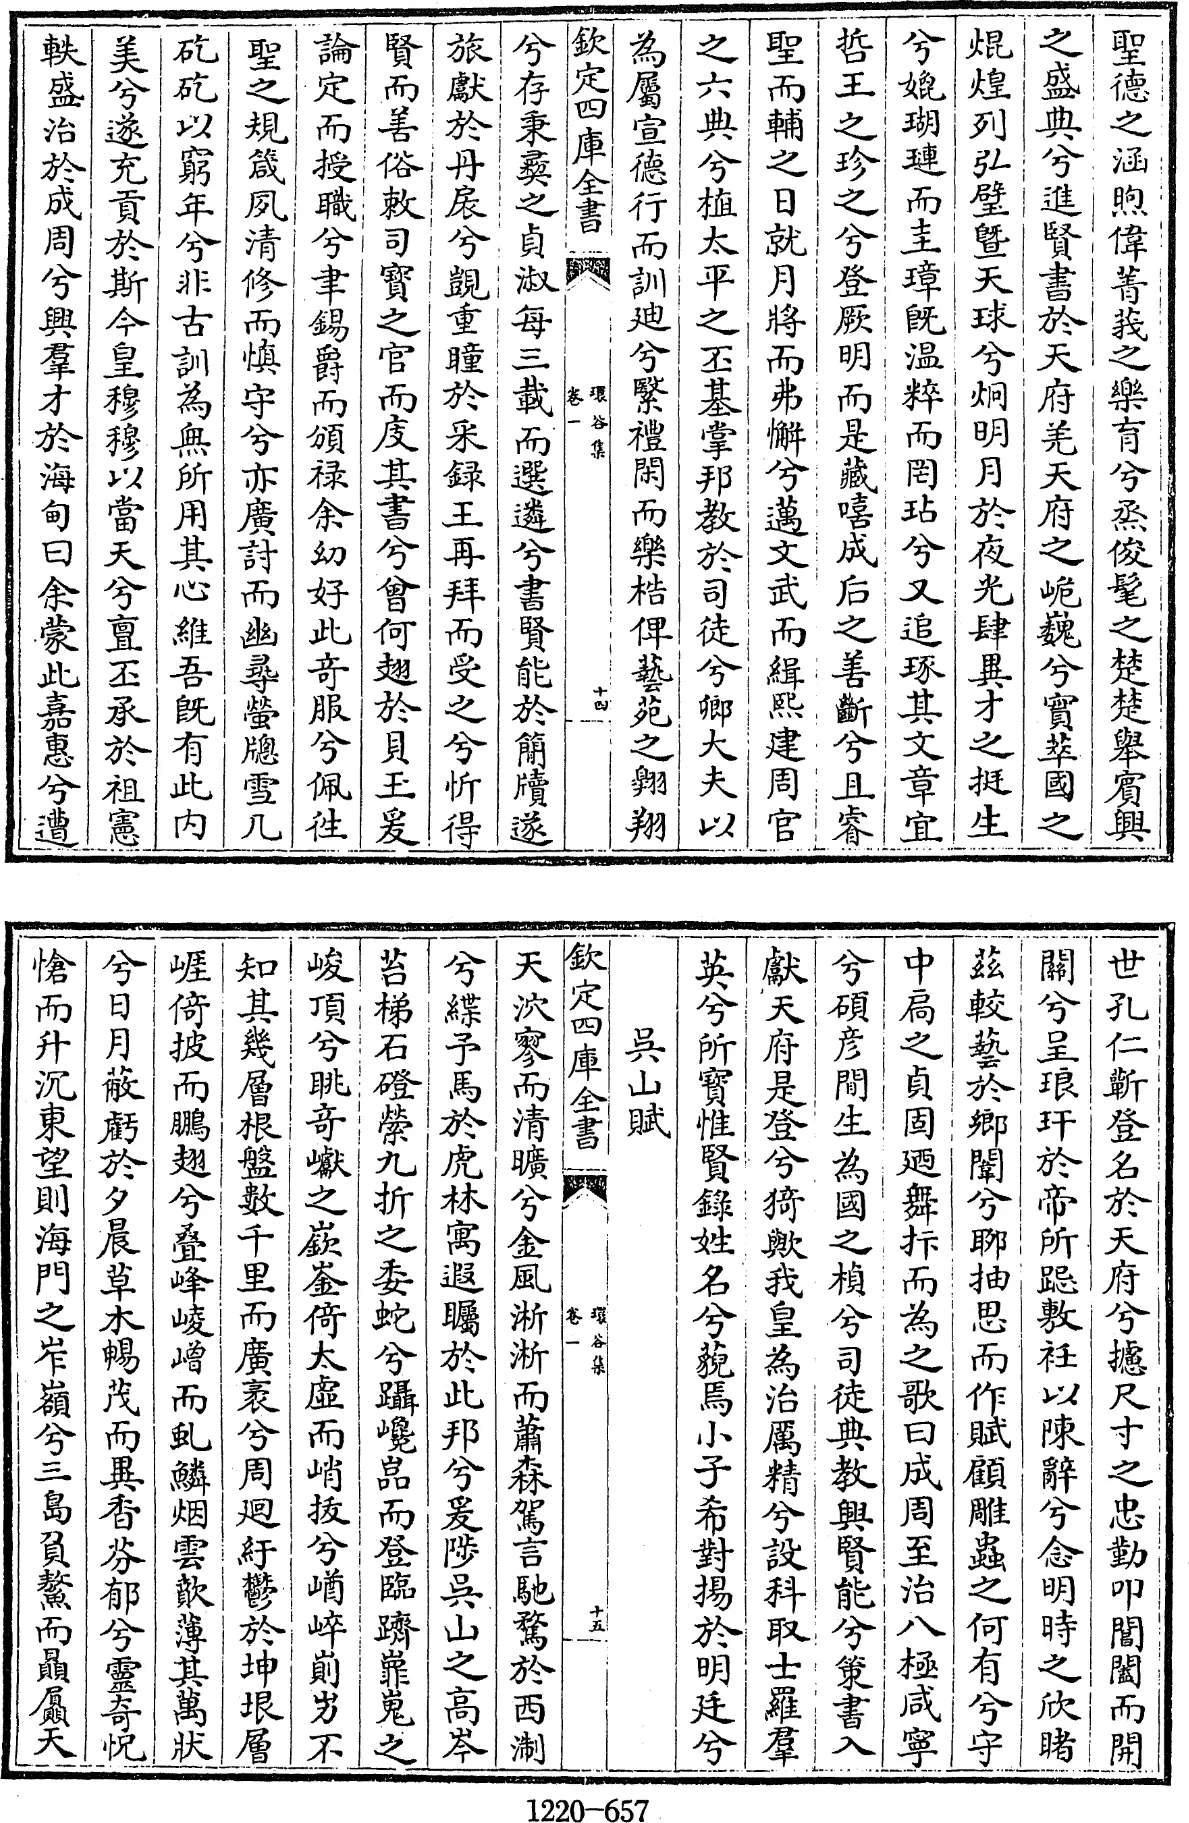 聖德之涵煦偉菁莪之樂育兮烝俊髦之楚楚舉賓興
之盛典兮進賢書於天府羌天府之峗巍兮實萃國之
焜煌列弘璧暨天球兮炯明月於夜光肆異才之挺生
兮媲瑚璉而圭璋旣温粹而罔玷兮又追琢其文章宜
哲王之珍之兮登厥明而是藏嘻成后之善斷兮且睿
聖而輔之日就月將而弗懈兮邁文武而緝熙建周官
之六典兮植太平之丕基掌邦教於司徒兮鄉大夫以
為屬宣德行而訓廸兮繄禮閑而樂梏俾藝苑之翺翔
欽定四庫全書
環谷集
卷一
十四
兮存秉彞之貞淑每三載而選遴兮書賢能於簡牘遂
旅獻於丹扆兮覲重瞳於采錄王再拜而受之兮忻得
賢而善俗敕司寶之官而庋其書兮曾何翅於貝玉爰
論定而授職兮聿錫爵而頒禄余幼好此奇服兮佩往
聖之規箴夙清修而慎守兮亦廣討而幽尋螢牕雪几
矻矻以窮年兮非古訓為無所用其心維吾旣有此内
美兮遂充貢於斯今皇穆穆以當天兮亶丕承於祖憲
軼盛治於成周兮興羣才於海甸曰余蒙此嘉惠兮遭
世孔仁蘄登名於天府兮攄尺寸之忠勤叩閶闔而開
關兮呈琅玕於帝所跽敷衽以陳辭兮念明時之欣睹
茲較藝於鄉闈兮聊抽思而作賦顧雕蟲之何有兮守
中扃之貞固廼舞抃而為之歌曰成周至治八極咸寧
兮碩彦間生為國之楨兮司徒典教興賢能兮䇿書入
獻天府是登兮猗歟我皇為治厲精兮設科取士羅羣
英兮所寶惟賢錄姓名兮藐焉小子希對揚於明廷兮
吳山賦
欽定四庫全書
環谷集
卷一
十五
天泬寥而清曠兮金風淅淅而蕭森駕言馳騖於西淛
兮緤予馬於虎林寓遐矚於此邦兮爰陟吳山之高岑
苔梯石磴縈九折之委蛇兮躡巉嵒而登臨躋巃嵬之
峻頂兮眺奇巘之嶔崟倚太虛而峭拔兮崷崪崱屴不
知其幾層根盤數千里而廣袤兮周廻紆鬱於坤垠層
崕倚披而鵬翅兮叠峰崚嶒而虬鱗烟雲歊薄其萬狀
兮日月蔽虧於夕晨草木暢茂而異香芬郁兮靈奇怳
愴而升沉東望則海門之岝嶺兮三島負鰲而贔屭天
1220-657